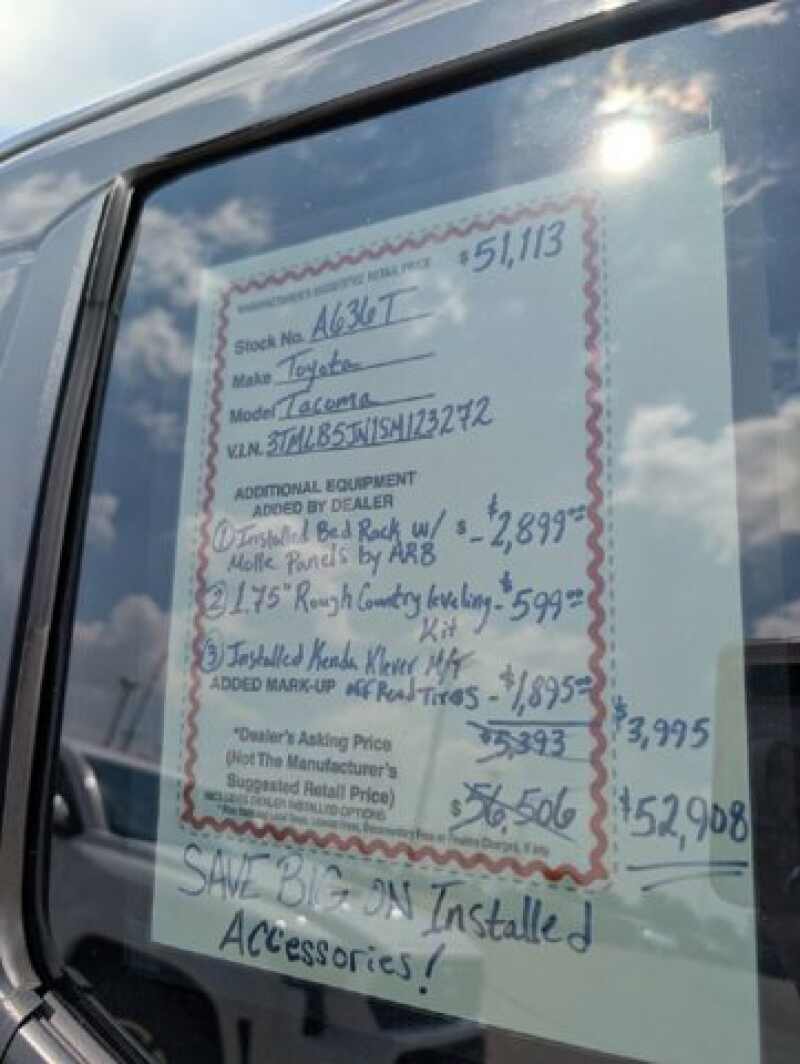 MANUFACTURER'S SUGGESTED RETAIL PRICE $51,113
Stock No. A636T
Make Toyota
Model Tacoma
V.I.N. 3TMLB5JN1SM123272
ADDITIONAL EQUIPMENT
ADDED BY DEALER
① Installed Bed Rack w/ $ - $2,899.00
Molle Panels by ARB
② 1.75" Rough Country leveling - $599.00
Kit
③ Installed Kenda Klever M/T
ADDED MARK-UP off Road Tires - $1,895.00
$5,393 $3,995
*Dealer's Asking Price
(Not The Manufacturer's
Suggested Retail Price) $56,506 $52,908
INCLUDES DEALER INSTALLED OPTIONS
SAVE BIG ON Installed
Accessories!